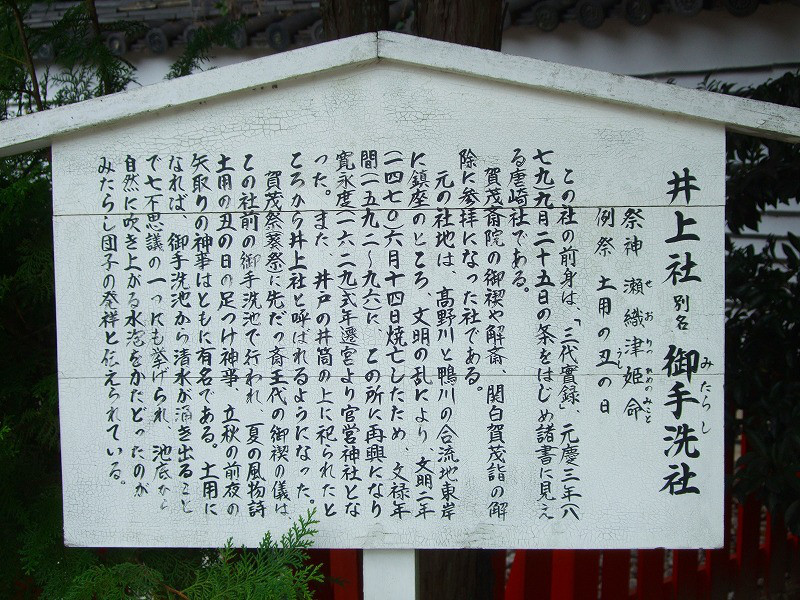 井上社 別名 御手洗社
みたらし
祭神 瀬織津姫命
せおりつひめのみこと
例祭 土用の丑の日
うし
この社の前身は、「三代實録」、元慶三年(八
七九)九月二十五日の条をはじめ諸書に見え
る唐崎社である。
賀茂斎院の御禊や解斎、関白賀茂詣の解
除に参拝になった社である。
元の社地は、高野川と鴨川の合流地東岸
に鎮座のところ、文明の乱により、文明二年
(一四七〇)六月十四日焼亡したため、文禄年
間(一五九二〜九六)に、この所に再興になり
寛永度(一六二九)式年遷宮より官営神社とな
った。また、井戸の井筒の上に祀られたと
ころから井上社と呼ばれるようになった。
賀茂祭(葵祭)に先だつ斎王代の御禊の儀は
この社前の御手洗池で行われ、夏の風物詩
土用の丑の日の足つけ神事、立秋の前夜の
矢取りの神事はともに有名である。土用に
なれば、御手洗池から清水が湧き出ること
で七不思議の一つにも挙げられ、池底から
自然に吹き上がる水泡をかたどったのが
みたらし団子の発祥と伝えられている。